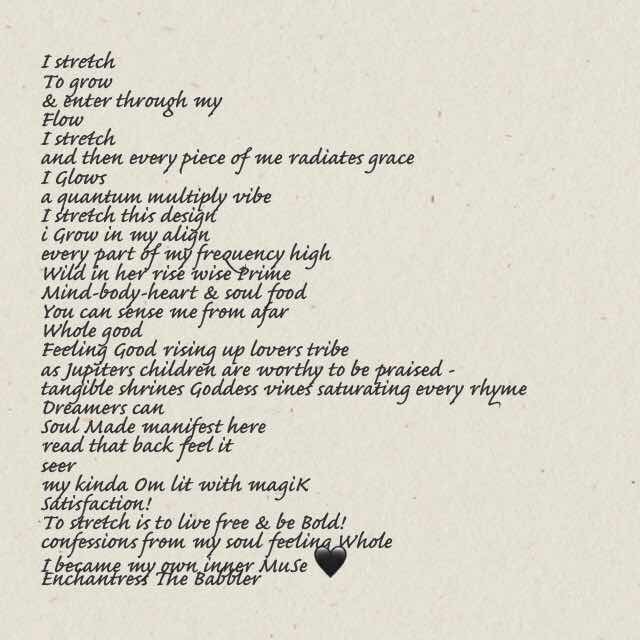 I stretch
To grow
& enter through my
Flow
I stretch
and then every piece of me radiates grace
I Glows
a quantum multiply vibe
I stretch this design
i Grow in my align
every part of my frequency high
Wild in her rise wise Prime
Mind-body-heart & soul food
You can sense me from afar
Whole good
Feeling Good rising up lovers tribe
as Jupiters children are worthy to be praised -
tangible shrines Goddess vines saturating every rhyme
Dreamers can
Soul Made manifest here
read that back feel it
seer
my kinda Om lit with magiK
Satisfaction!
To stretch is to live free & be Bold!
confessions from my soul feeling Whole
I became my own inner MuSe 🖤
Enchantress The Babbler